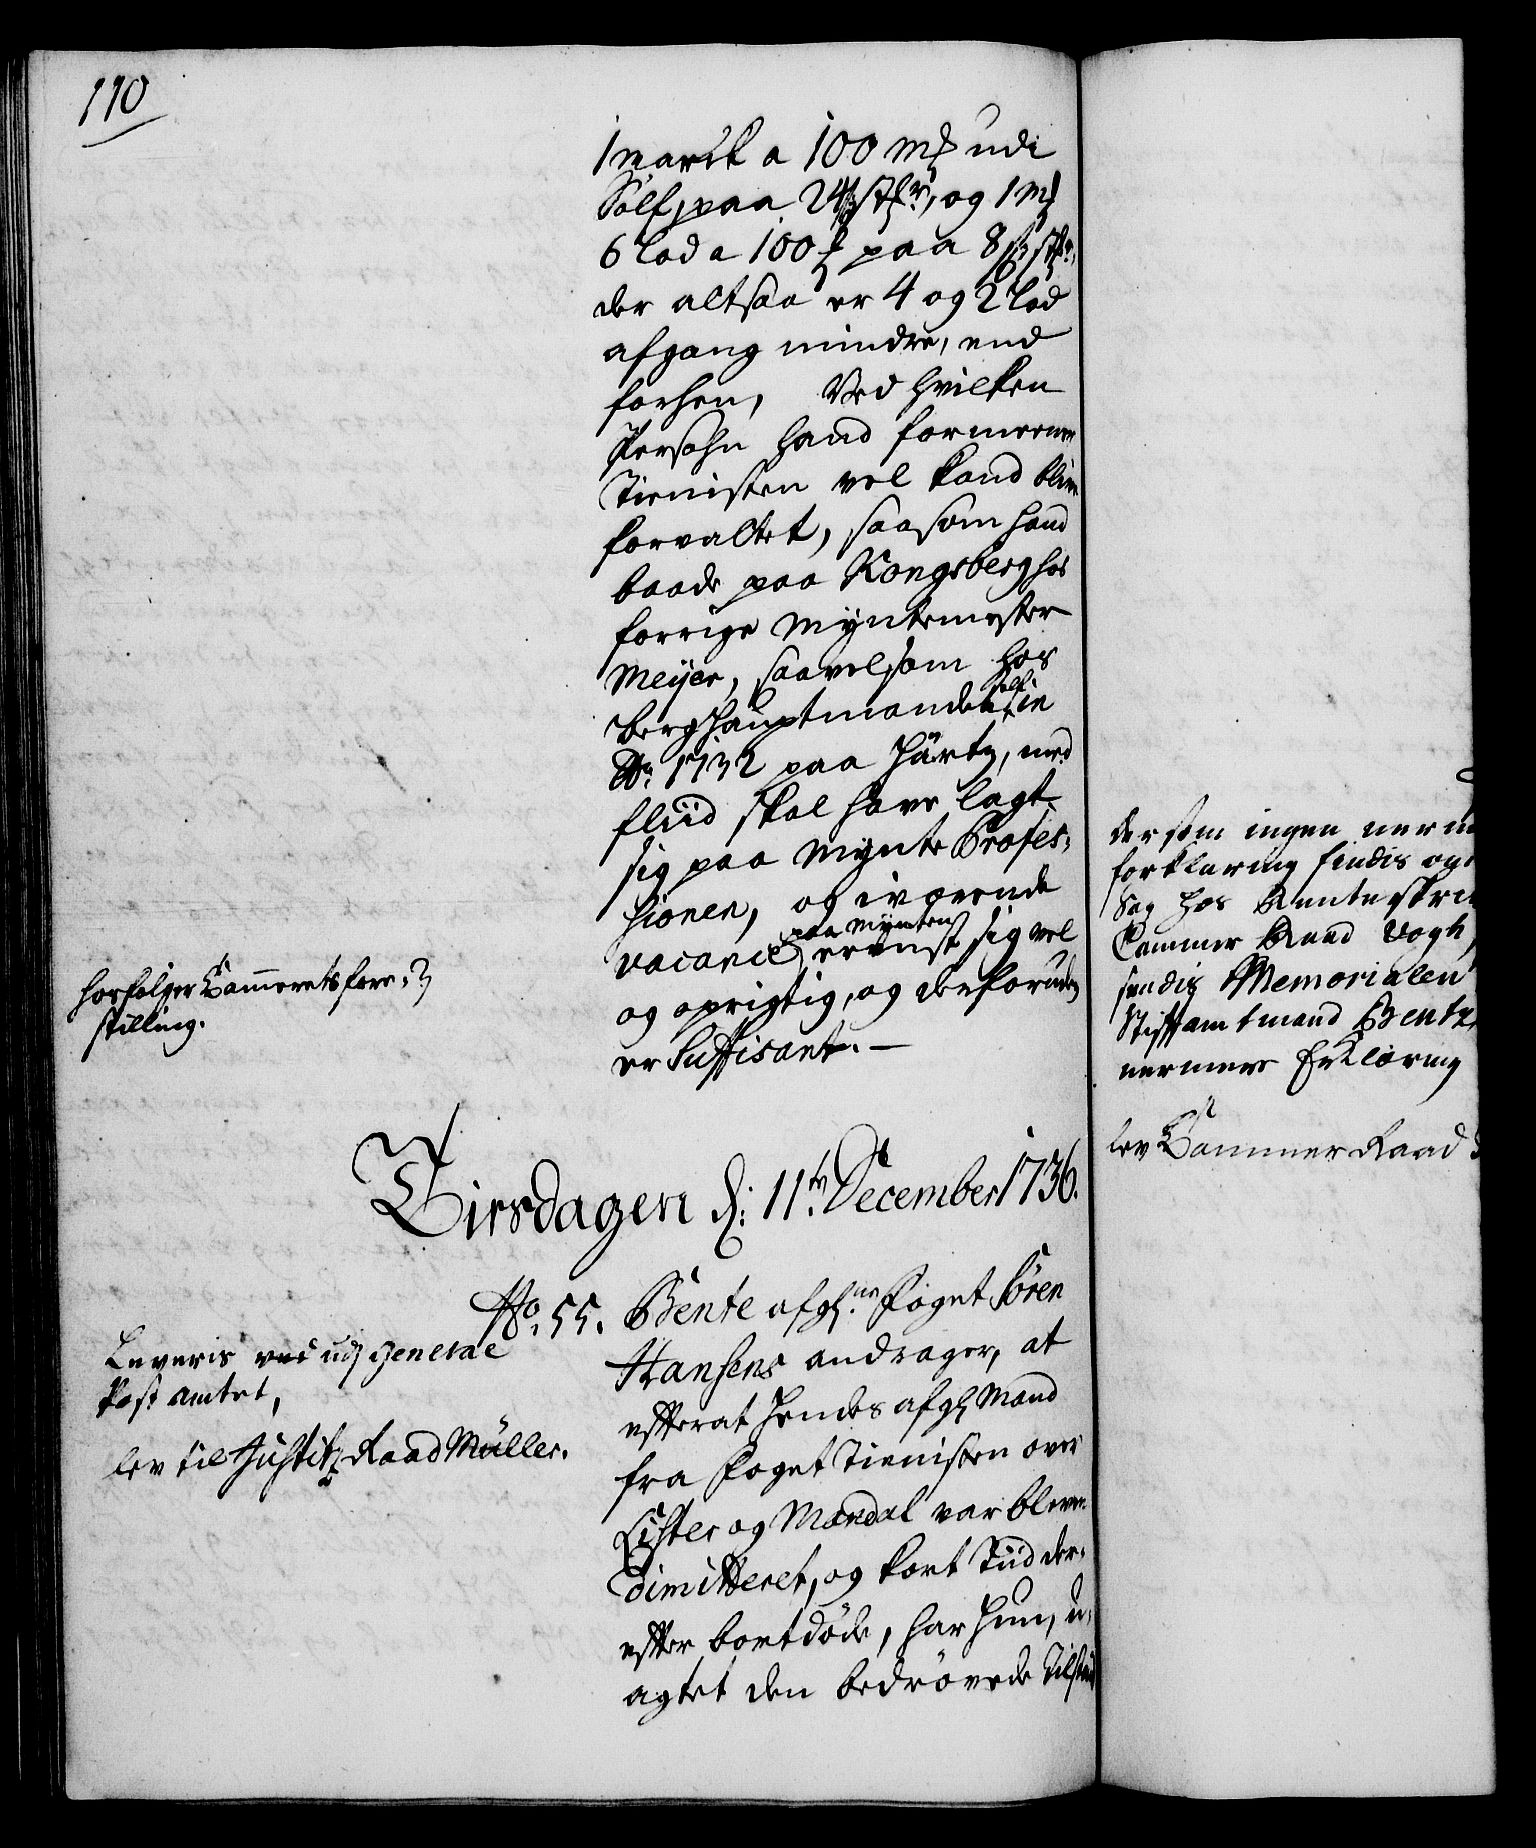 110
1 marck a 100 m𝔩 udi
Sölf, paa 24 st, og 1 m𝔩
6 lod a 100 paa 8
der altsaa er 4 og 2 lod
afgang mindre, end
forhen, Ved hvilken
Persohn hand formeener
Tienisten vel kand blive
forvaltet, saasom hand
baade paa Kongsberg hos
forrige Myntemester
Meyer, saavelsom hos
Berghauptmanden self in
Ao. 1732 paa Härtz, med
fliid skal have lagt
sig paa Mynte Profes-
hionen, og iværende
vacance paa Mynten teenst sig vel
og oprigtig, og desforuden
er Suffisant. —
herfølger Cammerets fore-
stilling.
Tirsdagen d: 11te December 1736.
No. 55. Bente afgl. Foget Sören
Hansens andrager, at
efterat hendes afgl Mand
fra Foget Tienisten over
Lister og Mandal var bleven
dimitteret, og kort Tiid der-
efter bortdöde, har hun, u-
agtet den bedrövede Tilstand
Leveris ved udj General
Post amtet,
lev til Justitz Raad Müller.
dersom ingen nerm
forklaring findis og
Sag hos Rente skri
Cammer Raad Vogh,
sendis Memorialen
Stiftamtmand Bentz
nermere Erklæring
lev Cammer Raad